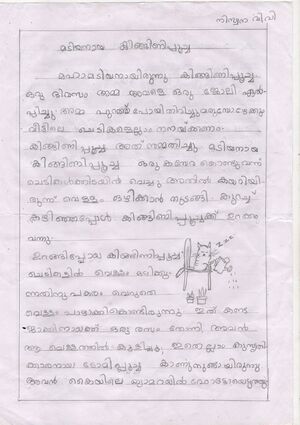 നിസ്വന വി.വി
മടിയനായ കിങ്ങിണിപ്പൂച്ച
മഹാമടിയനായിരുന്നു കിങ്ങിണിപ്പൂച്ച
ഒരു ദിവസം അമ്മ അവനെ ഒരു ജോലി ഏൽ-
പ്പിച്ചു അമ്മ പുറത്ത് പോയി തിരിച്ചു വരുമ്പോഴേക്കും
വീട്ടിലെ ചെടികളെല്ലാം നനയ്ക്കണം.
കിങ്ങിണിപ്പൂച്ച അത് സമ്മതിച്ചു മടിയനായ
കിങ്ങിണിപ്പൂച്ച ഒരു കസേര കൊണ്ടുവന്ന്
ചെടികൾക്കിടയിൽ വെച്ചു അതിൽ കയറിയി-
രുന്ന് വെള്ളം ഒഴിക്കാൻ തുടങ്ങി. കുറച്ച്
കഴിഞ്ഞപ്പോൾ കിങ്ങിണിപ്പൂച്ചക്ക് ഉറക്കം
വന്നു.
ഉറങ്ങിപ്പോയ കിങ്ങിണിപ്പൂച്ച
ചെടികളിൽ വെള്ളം ഒഴിക്കു-
ന്നതിനുപകരം വെറുതെ
വെള്ളം പാഴാക്കികൊണ്ടിരുന്നു ഇത് കണ്ട
ഒരു രസം തോന്നി. അവൻ
ആ വെള്ളത്തിൽ കുളിച്ചു. ഇതെല്ലാം കുസൃതി-
ക്കാരനായ ടോമിപ്പൂച്ച കാണുന്നുണ്ടായിരുന്നു
അവൻ കൈയിലെ ക്യാമറയിൽ ഫോട്ടോയെടുത്തു